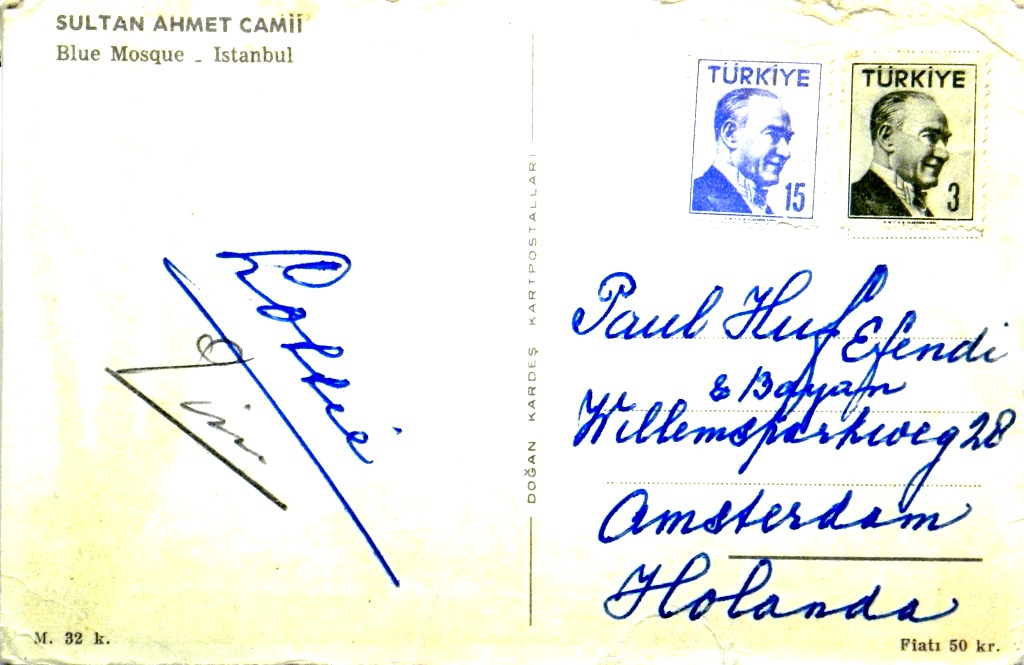 SULTAN AHMET CAMİİ
Blue Mosque - Istanbul
TÜRKİYE
15
TÜRKİYE
3
DOĞAN KARDEŞ KARTPOSTALLARI
Paul Huf Efendi
& Bayan
Willemsparkweg 28
Amsterdam
Holanda
M. 32 k.
Fiatı 50 kr.